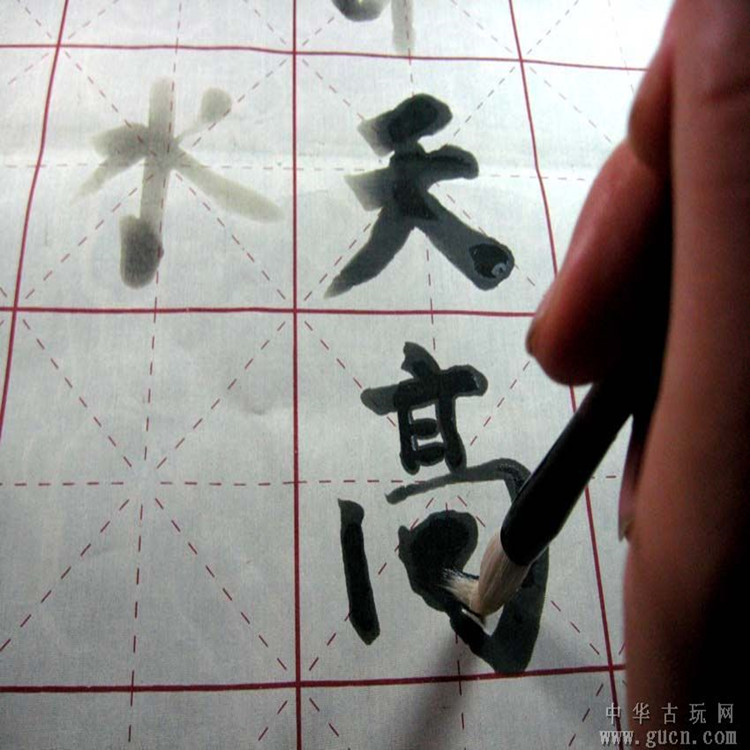 天高
水
中华古玩网
www.gucn.com